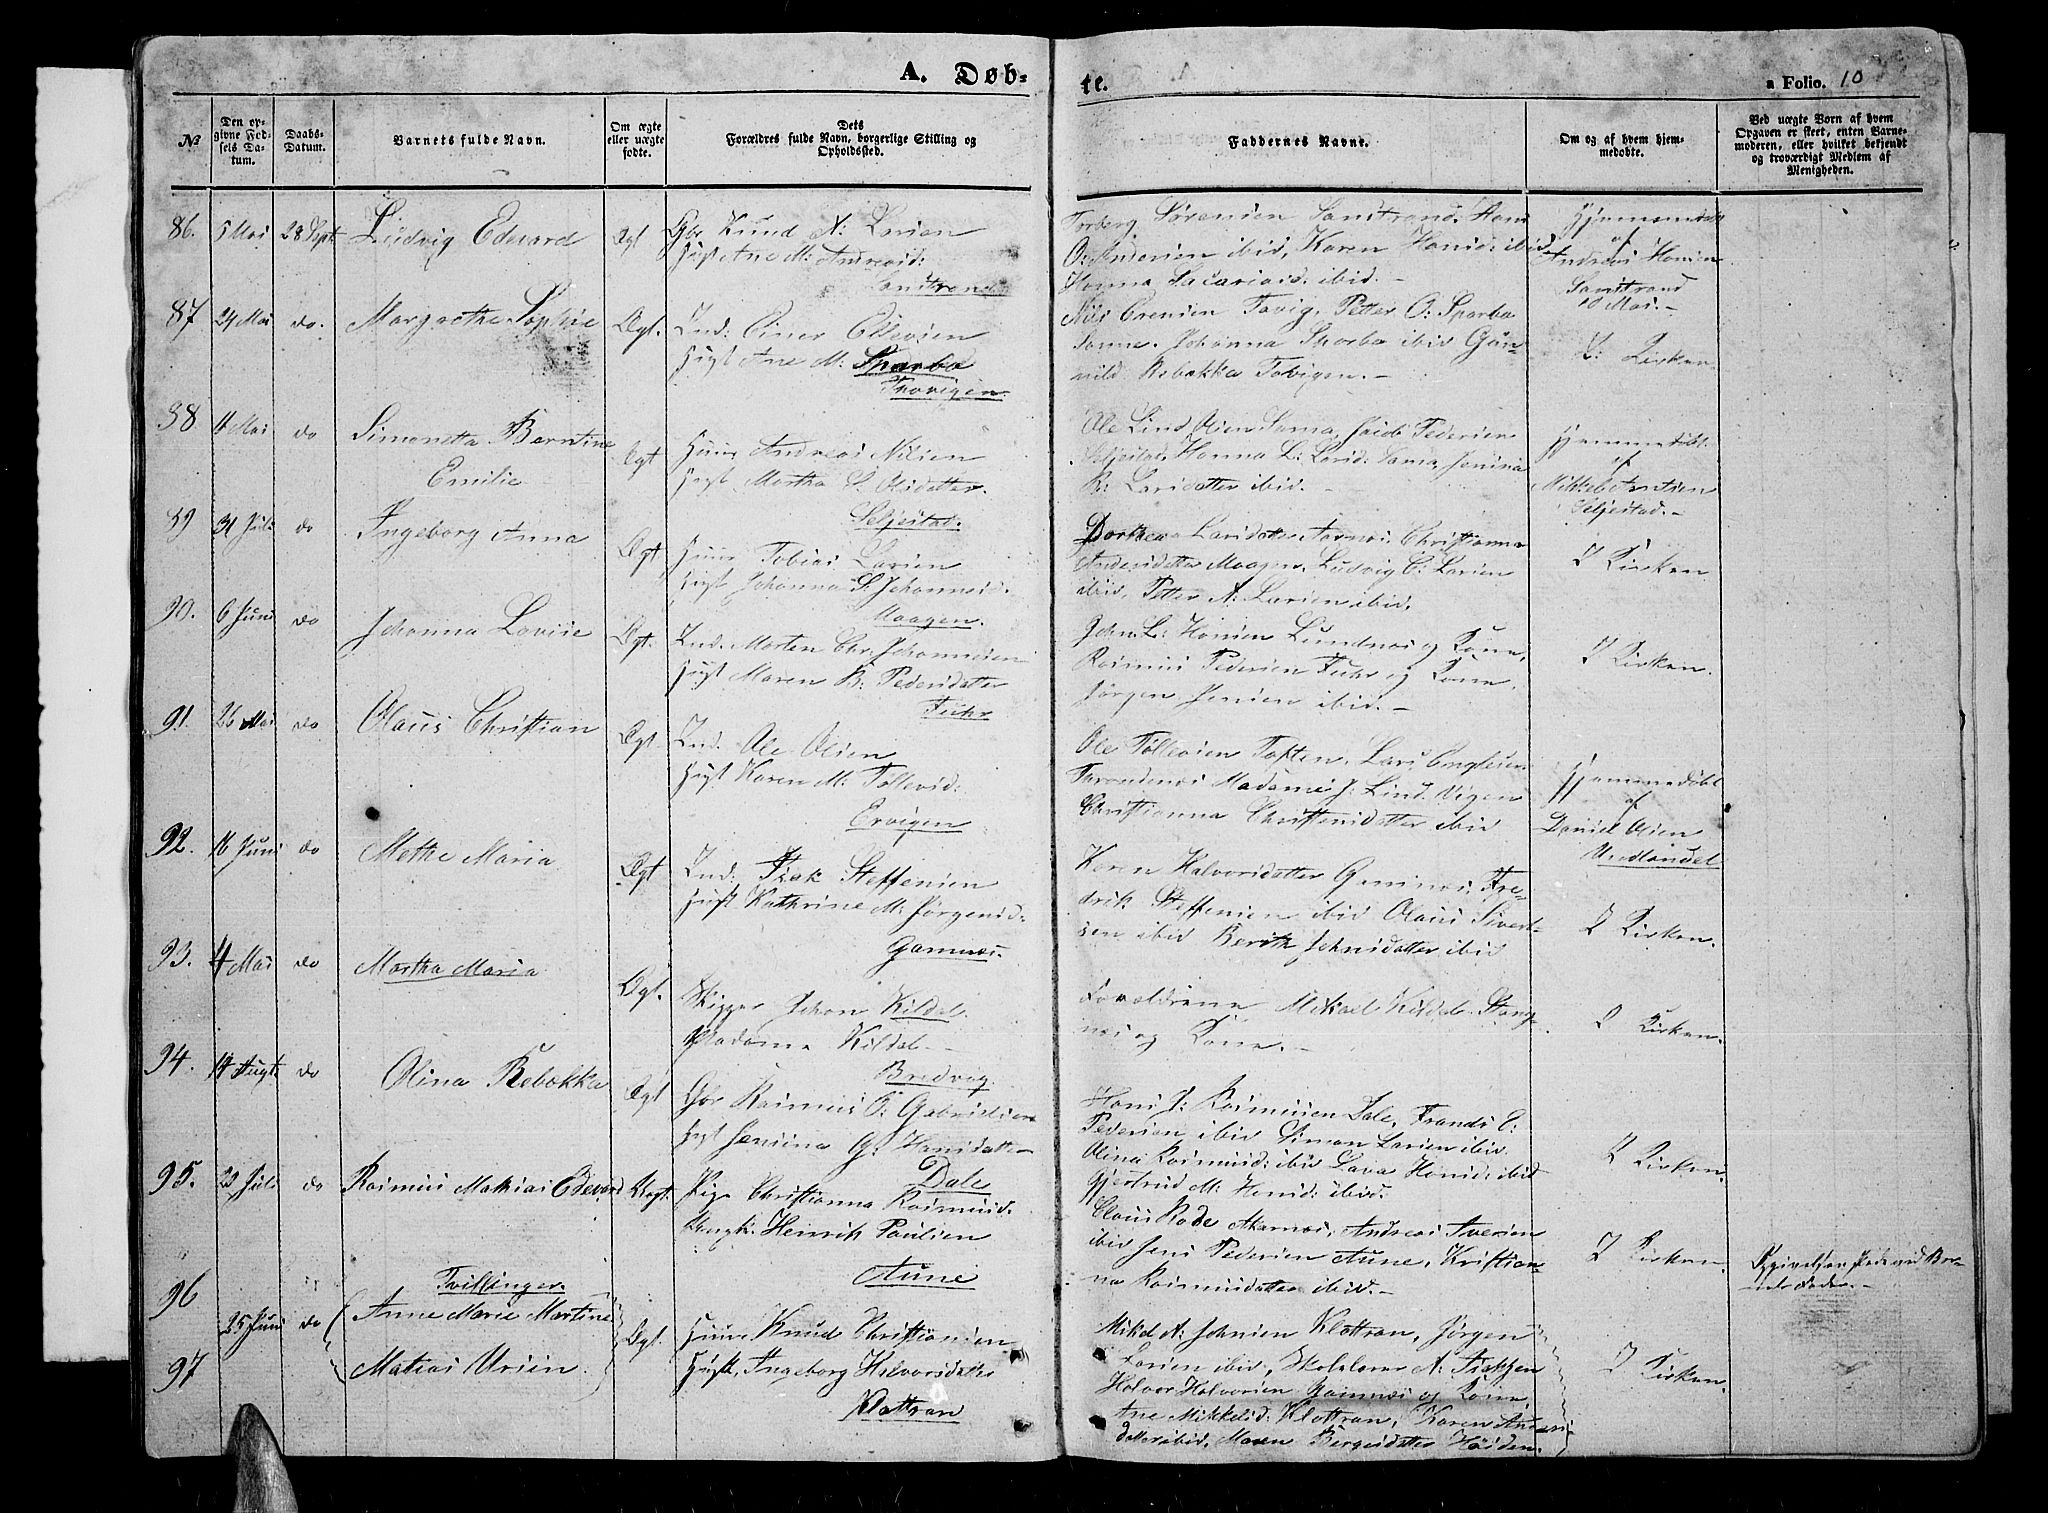 A. Døb-
te.
a Folio. 10
No
Den op-
givne Fød-
sels Da-
tum.
Daabs-
Datum.
Barnets fulde Navn.
Om ægte
eller uægte
fødte.
Dets
Forældres fulde Navn, borgerlige Stilling og
Opholdssted.
Faddernes Navne.
Om og af hvem hjem-
medøbte.
Ved uægte Born af hvem
Opgaven er skeet, enten Barne-
moderen, eller hvilket bekjendt
og troværdigt Medlem af
Menigheden.
86. 5 Mai 28 Sept Ludvig Edevard Ægt Gbr Knud N: Larsen
Hust Ane M: Andreasd:
Sandstrand
Torberg Sørensen Sandstrand, Hans
O: Andersen ibid, Karen Hansd: ibid
Hanna Sacariasd. ibid. -
Hjemmedøbt
af
Andreas Hansen
Sandstrand
10 Mai. -
87 24 Mai do. Margrethe Sophie Ægt. Ind: Einer Ellevsen
Hust Ane M: Sparbo
Trovigen.
Nils Erensen Tovig, Petter O: Sparbo
Sama. Johanna Sparbo ibid Gun-
nild Rebekka Tovigen. -
I Kirken
88 4 Mai do Simonetta Berntine
Emilie
Ægt Huus Andreas Nilsen
Hust Martha S. Olsdatter.
Seljestad.
Ole Lind Olsen Sama, Jacob Pedersen
Seljestad, Hanna L: Larsd: Sama, Jensina
B: Larsdatter ibid. -
Hjemmedøbt
af
Mikkel Arntsen
Seljestad. -
89 31 Juli do Ingeborg Anna Ægt Huus Tobias Larsen
Hust Johanna S: Johannesd.
Maagen.
Dorthea Larsdatter Aarnæs, Christianna
Andersdatter Maagen, Ludvig C: Larsen
ibid, Petter A: Larsen ibid.
I Kirken
90. 6 Juni do Johanna Lovise Ægt. Ind. Morten Chr. Johannesen
Hust Maren B: Pedersdatter
Fuhr
John L: Hansen Lundnæs og Kone,
Rasmus Pedersen Fuhr og Kone,
Jørgen Jensen ibid. -
I Kirken.
91. 26 Mai do Olaus Christian Ægt. Ind. Ole Olsen
Hust Karen M: Tollevsd:
Ervigen
Ole Tollevsen Toften, Lars Engelsen
Madame J: Lind. Vigen
Christianna Christensdatter ibid
Hjemmedøbt
af
Daniel Olsen
Undlandet
92. 16 Juni do Methe Maria Ægt Ind: Isak Steffensen
Hust Kathrine M: Jørgensd:
Gamnæs.
Karen Halvorsdatter Gamnæs, Fre-
drik Steffensen ibid Olaus Sivert-
sen ibid Berith Johnsdatter ibid
I Kirken.
93. 4 Mai do Martha Maria Ægt. Skipper Johan Kildal
Madame Kildal -
Bredvog
Forældrene Mikael Kildal Stang-
næs og Kone. -
I Kirken.
94. 14 Augt do Olina Rebekka Ægt Gbr Rasmus O: Gabrielsen
Hust Jensina G: Hansdatter
Dale
Hans J: Rasmussen Dale, Frands E:
Pedersen ibid Simon Larsen ibid.
Olina Rasmusd: ibid Lava Hansd: ibid
Gjertrud M: Hansd: ibid.
I Kirken.
95. 23 Juli do Rasmus Mathias Edevard Uægt. Pige Christianna Rasmusd.
Ungk. Henrik Paulsen
Aune
Claus Rode Akarnæs, Andreas Iversen
ibid Jens Pedersen Aune, Kristian-
na Rasmusdatter ibid. -
I Kirken.
Opgivelsen skede ved Bar-
nets Fader. -
96
97
25 Juni do Tvillinger.
Anne Marie Martine
Matias Ursin.
Ægt. Huus Knud Christiansen
Hust. Ingeborg Halvorsdatter
Klottran
Mikel A: Johnsen Klottran, Jørgen
Larsen ibid, Skolelærer A: Isaksen
Halvor Halvorsen Gamnæs og Kone,
Ane Mikkelsd: Klottran, Karen Anders-
datter ibid, Maren Bergesdatter
I Kirken.